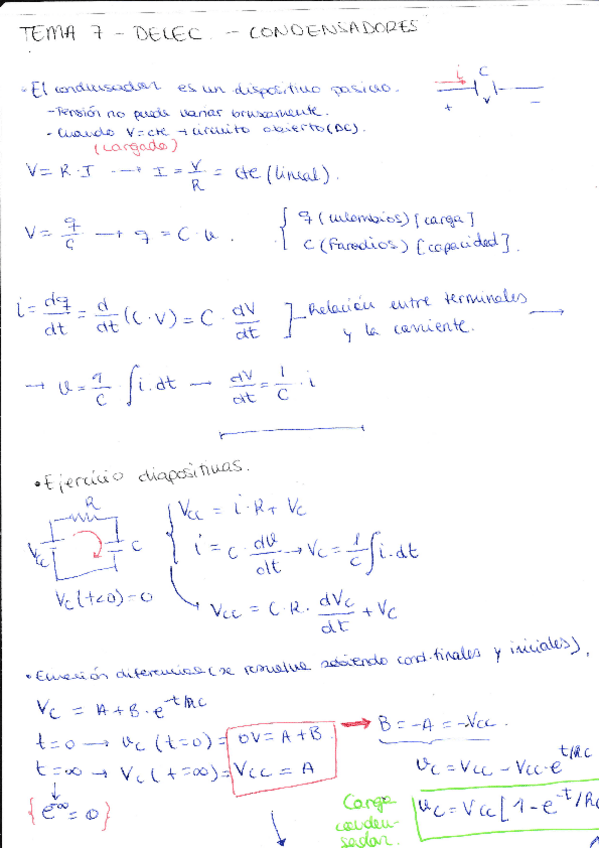 TEMA 7 - DELEC. - CONDENSADORES
· El condensador es un dispositivo pasivo.
i C
+ V -
- Tensión no puede variar bruscamente.
- Cuando V=cte → circuito abierto (DC).
(cargado)
V = R · I → I = V/R = cte (lineal).
V = q/C → q = C · v. { q (culombios) [carga]
C (Faradios) [capacidad].
i = dq/dt = d/dt (C · V) = C · dV/dt ] - Relación entre terminales
y la corriente.
→ v = 1/C · ∫ i · dt → dV/dt = 1/C · i
· Ejercicio diapositivas.
R
Vcc C
Vc (t<0) = 0
{ Vcc = i · R + Vc
i = C · dv/dt → Vc = 1/C ∫ i · dt
Vcc = C · R · dVc/dt + Vc
· Ecuación diferencial (se resuelve sabiendo cond. finales y iniciales),
Vc = A + B · e^-t/RC
t=0 → vc (t=0) = 0V = A + B → B = -A = -Vcc.
t=∞ → Vc (t=∞) = Vcc = A
vc = Vcc - Vcc · e^t/RC
{ e^-∞ = 0 }
Carga conden-sador.
vc = Vcc [ 1 - e^-t/RC